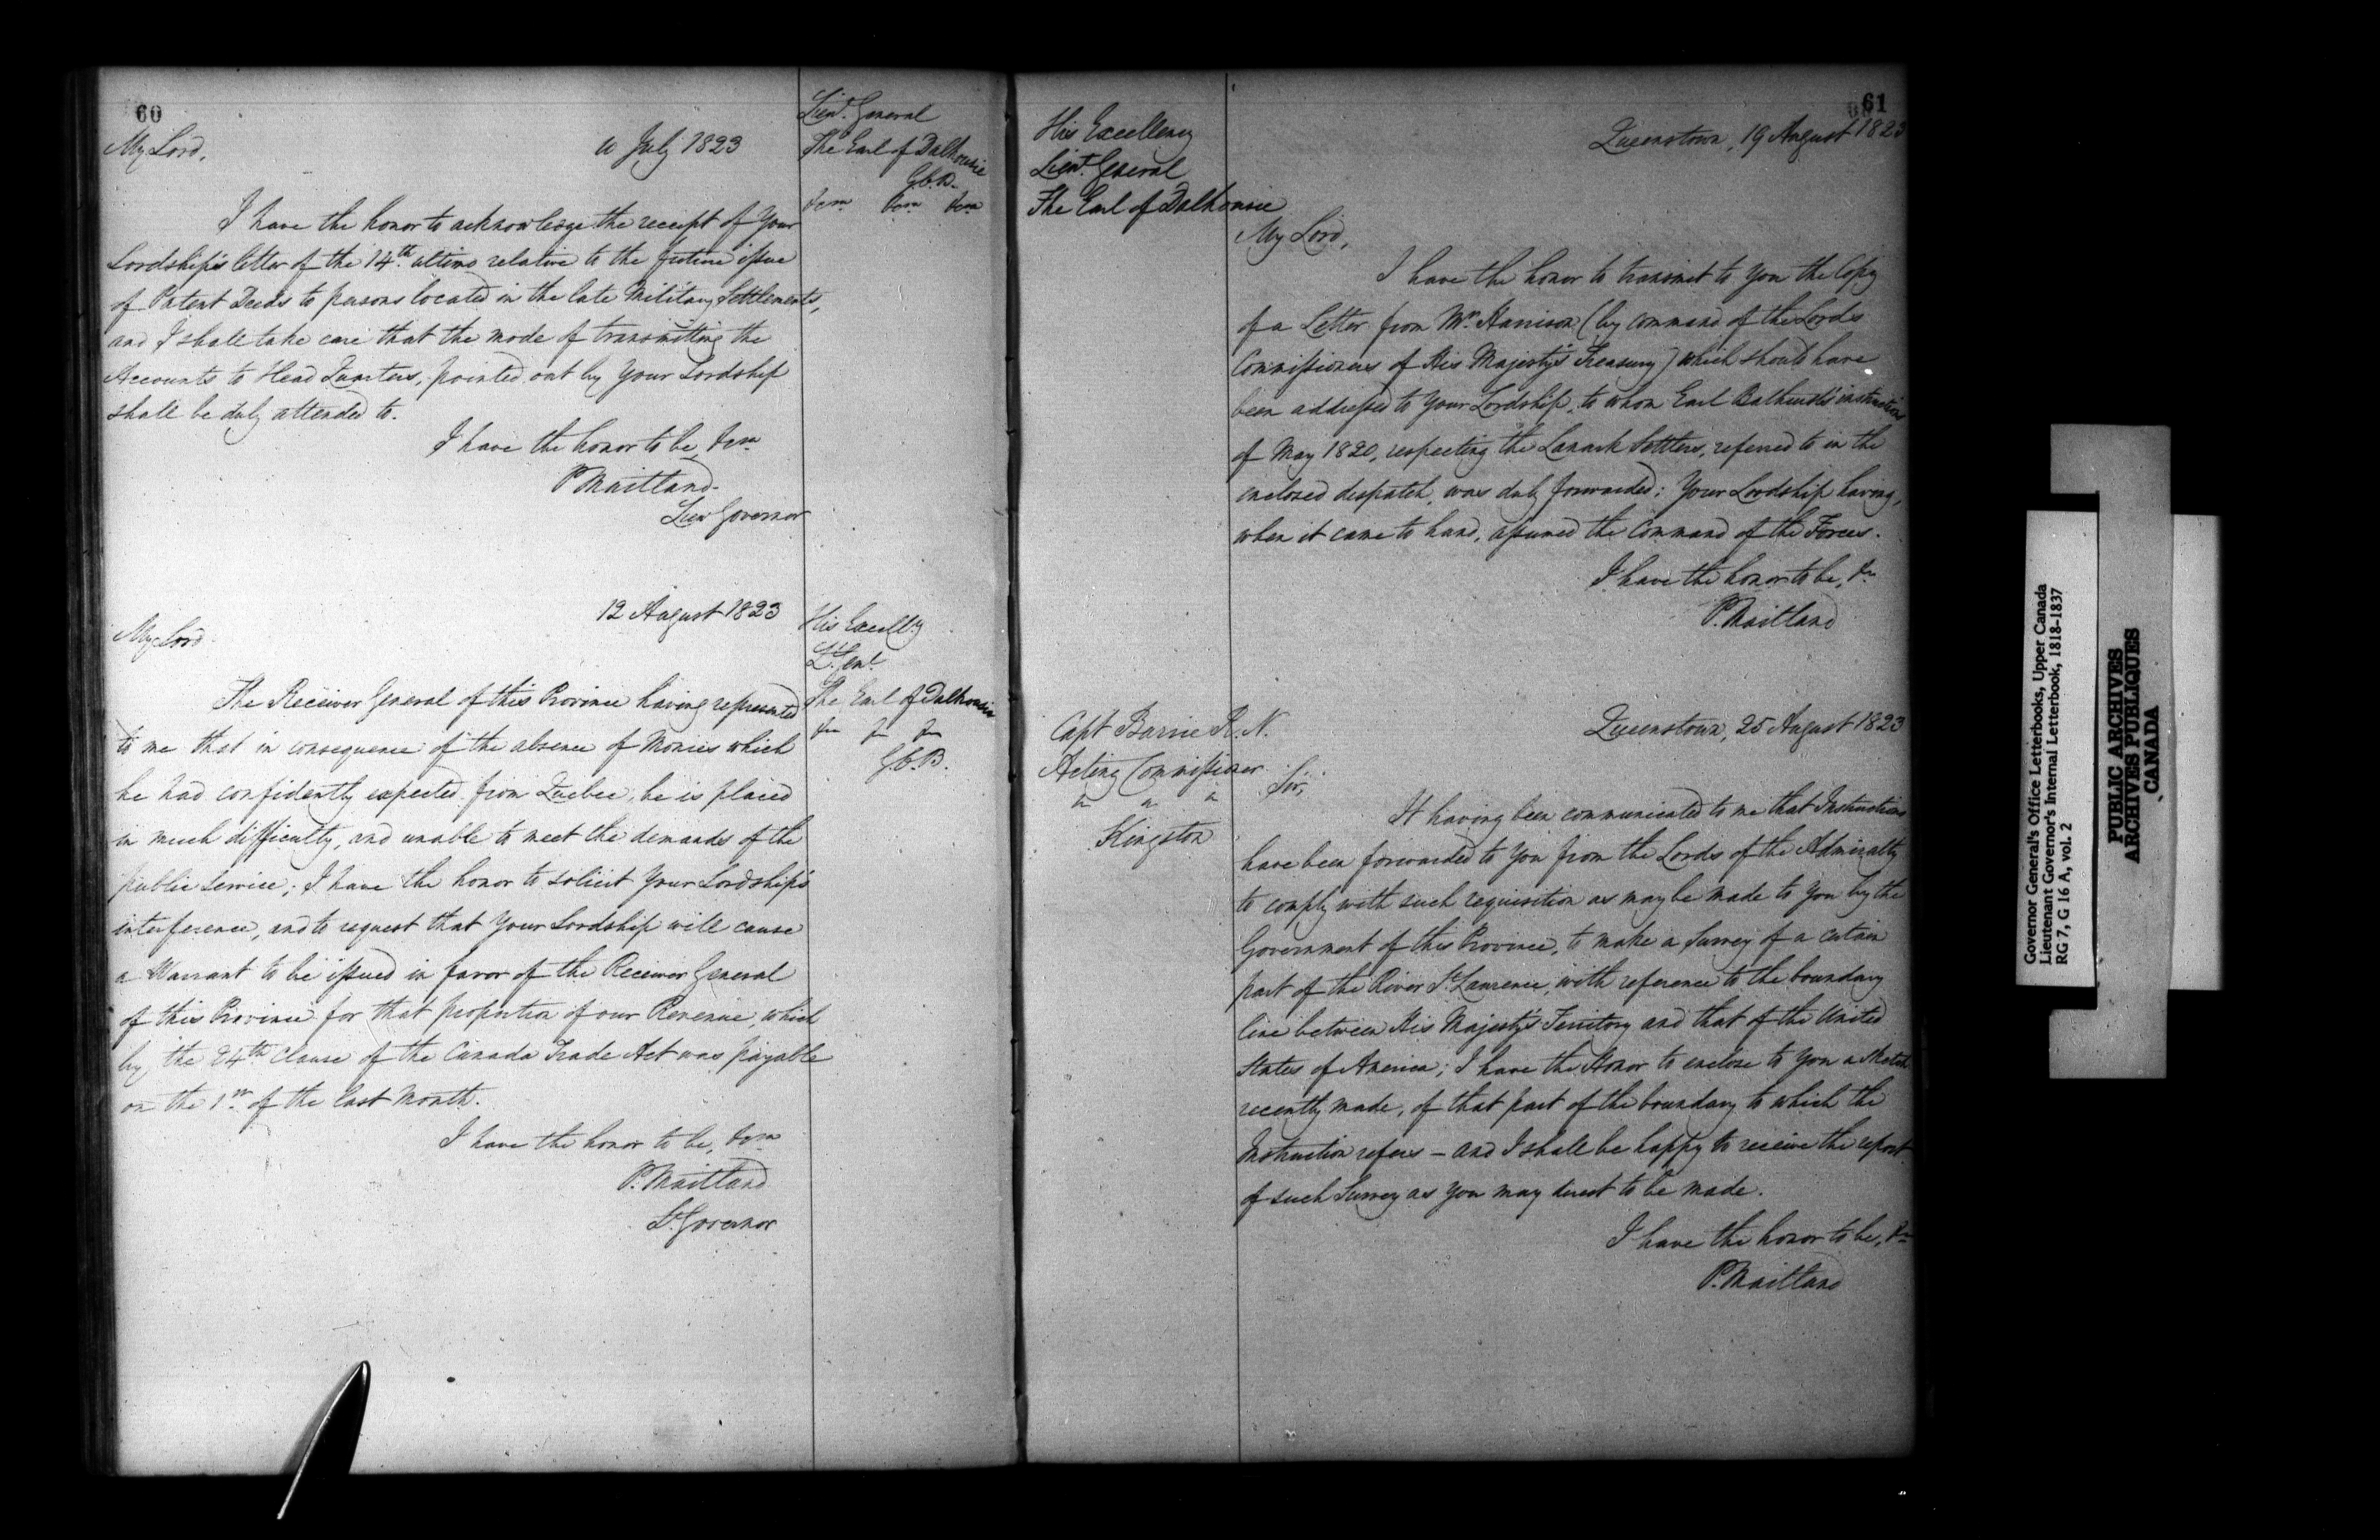 60
Lieut. General
The Earl of Dalhousie
G.C.B.
My Lord,
10 July 1823
I have the honor to acknowledge the receipt of Your
Lordship's letter of the 14th ultimo relative to the future issue
of Patent Deeds to persons located in the late Military Settlements,
and I shall take care that the mode of transmitting the
Accounts to Head Quarters, pointed out by Your Lordship
shall be duly attended to.
I have the honor to be,
P Maitland
Lieu Governor
12 August 1823
His Excelly
Lt. Genl.
The Earl of Dalhousie
G.C.B.
My Lord
The Receiver General of this Province having represented
to me that in consequence of the absence of Monies which
he had confidently expected from Quebec, he is placed
in much difficulty, and unable to meet the demands of the
public service; I have the honor to solicit Your Lordship's
interference, and to request that Your Lordship will cause
a Warrant to be issued in favor of the Receiver General
of this Province for that proportion of our Revenue, which
by the 24th Clause of the Canada Trade Act was payable
on the 1st of the last Month.
I have the honor to be,
P. Maitland
Lt Governor
61
His Excellency
Lieut. General
The Earl of Dalhousie
Queenstown, 19 August 1823
My Lord,
I have the honor to transmit to You the Copy
of a Letter from Mr. Harrison (by command of the Lords
Commissioners of His Majesty's Treasury) which should have
been addressed to Your Lordship, to whom Earl Bathurst's instructions
of May 1820, respecting the Lanark Settlers, referred to in the
enclosed despatch, was duly forwarded: Your Lordship having,
when it came to hand, assumed the Command of the Forces.
I have the honor to be, &c
P. Maitland
Capt Barrie R.N.
Acting Commissioner
Kingston
Queenstown, 25 August 1823
Sir,
It having been communicated to me that Instructions
have been forwarded to You from the Lords of the Admiralty
to comply with such requisition as may be made to You by the
Government of this Province, to make a Survey of a certain
part of the River St. Laurence, with reference to the boundary
line between His Majesty's Territory and that of the United
States of America; I have the Honor to enclose to You a Sketch
recently made, of that part of the boundary to which the
Instruction refers – and I shall be happy to receive the report
of such Survey as You may direct to be made.
I have the honor to be, &c
P. Maitland
Governor General's Office Letterbooks, Upper Canada
Lieutenant Governor's Internal Letterbook, 1818-1837
RG 7, G 16 A, vol. 2
PUBLIC ARCHIVES
ARCHIVES PUBLIQUES
CANADA